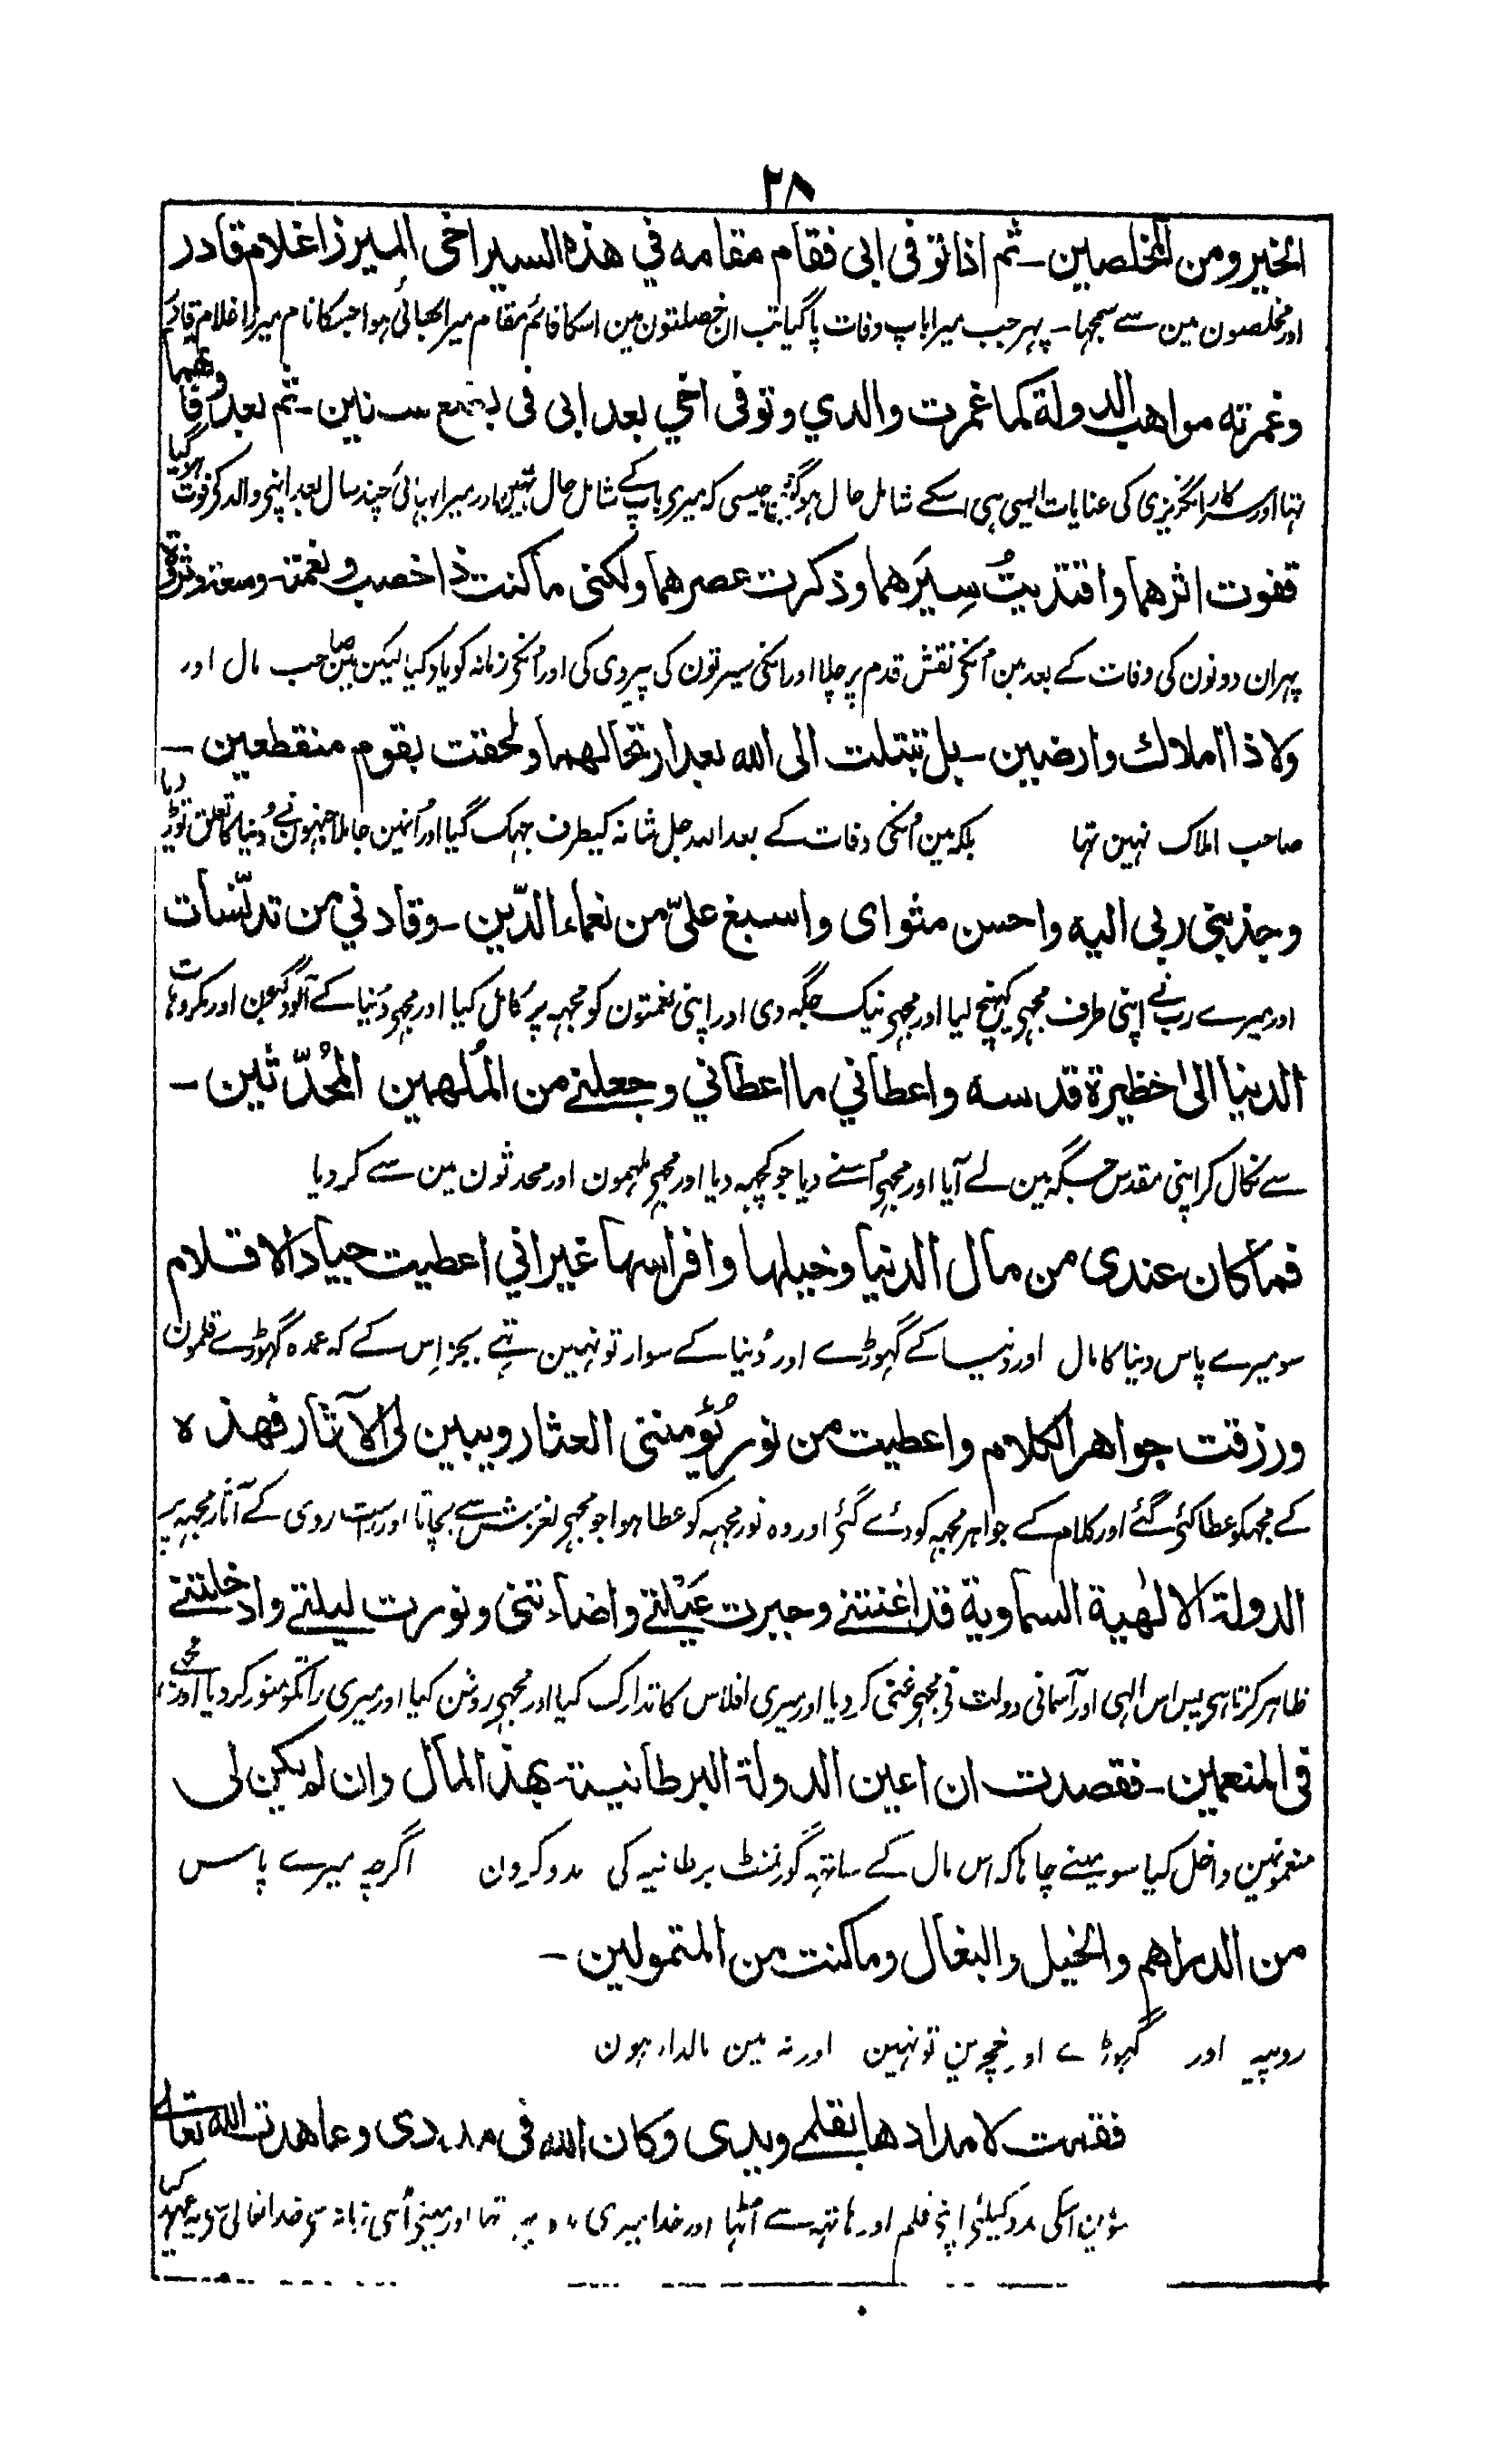 ٢٨
الخير ومن المخلصين ـ ثم اذا توفى ابى فقام مقامه في هذه السير اخى الميرزا غلام قادر
اور مخلصون مین سے سمجہا ـ پہر جب میرا باپ وفات پا گیا تب ان خصلتون مین اسکا قائم مقام میرا بھائی ہوا جسکا نام میرزا غلام قادر
وغمرته مواهب الدولة كما غمرت والدي وتوفى اخي بعد ابى فى بضع سنين ـ ثم بعد وفاتهما
تہا اور سرکار انگریزی کی عنایات ایسی ہی اسکے شامل حال ہوگئین جیسی کہ میری باپ کے شامل حال تہین اور میرا بہائی چند سال بعد اپنی والد کے فوت ہوگیا
قفوت اثرهما واقتديتُ سِيَرهما وذكرت عصرهما ولكنى ماكنت ذا خصب ونعمة ـ وسعة وثروة
پہر ان دونون کی وفات کے بعد مین اُنکی نقش قدم پر چلا اور انکی سیرتون کی پیروی کی اور اُنکی زمانہ کو یاد کیا لیکن مین صاحب مال اور
ولا ذا املاك وارضين ـ بل تبتلت الى الله بعد ارتحالهما ولحقت بقوم منقطعين ـ
صاحب املاک نہین تہا بلکہ مین اُنکی وفات کے بعد اللہ جل شانہ کیطرف جہک گیا اور اُنہین جا ملا جنہون نے دُنیا کا تعلق توڑ دیا
وجذبنى ربى اليه واحسن مثواى واسبغ علىّ من نعماء الدّين ـ وقادني من تدنّسات
اور میرے رب نے اپنی طرف مجہی کہینچ لیا اور مجہی نیک جگہ دی اور اپنی نعمتون کو مجہہ پر کامل کیا اور مجہی دُنیا کے آلودگیون اور مکروہات
الدنيا الى خظيرة قدسه واعطاني ما اعطاني وجعلنے من المُلهمين المُحدّثين ـ
سے نکال کر اپنی مقدس جگہ مین لے آیا اور مجہی اُسنے دیا جو کچہہ دیا اور مجہی ملہمون اور محدثون مین سے کر دیا
فما كان عندى من مال الدنيا وخيلها وافراسها غير اني اعطيت جياد الاقلام
سو میرے پاس دنیا کا مال اور دنیا کے گہوڑے اور دُنیا کے سوار تو نہین تہے بجز اِس کے کہ عمدہ گہوڑے قلمون
ورزقت جواهر الكلام واعطيت من نور يُؤمننى العثار ويبين لى الآثار فهذه
کے مجہکو عطا کئی گئے اور کلام کے جواہر مجہہ کو دئے گئی اور وہ نور مجہہ کو عطا ہوا جو مجہی لغزش سے بچاتا اور راست روی کے آثار مجہہ پر
الدولة الالٰهية السماوية قد اغنتنے وجبرت عَيْلتے واضاءتنى ونورت ليلتے وادخلتنے
ظاہر کرتا ہی پس اس الہی اور آسمانی دولت نی مجہی غنی کر دیا اور میری افلاس کا تدارک کیا اور مجہی روشن کیا اور میری رات کو منور کر دیا اور مجہی
فى المنعمين ـ فقصدت ان اعين الدولة البرطانية بهذا المال وان لم يكن لى
منعمونمین داخل کیا سو مینے چاہا کہ اس مال کے ساتہہ گورنمنٹ برطانیہ کی مدد کرون اگرچہ میرے پاس
من الدراهم والخيل والبغال وماكنت من المتمولين ـ
روپیہ اور گہوڑے اور خچرین تو نہین اور نہ مین مالدار ہون
فقمت لامدادها بقلمے ويدى وكان الله فى مددى وعاهدت الله تعالے
سو مین اسکی مدد کیلئی اپنی قلم اور ہاتہہ سے اُٹہا اور خدا میری مدد پر تہا اور مینی اُسی زمانہ سی خدا تعالی سی یہ عہد کیا